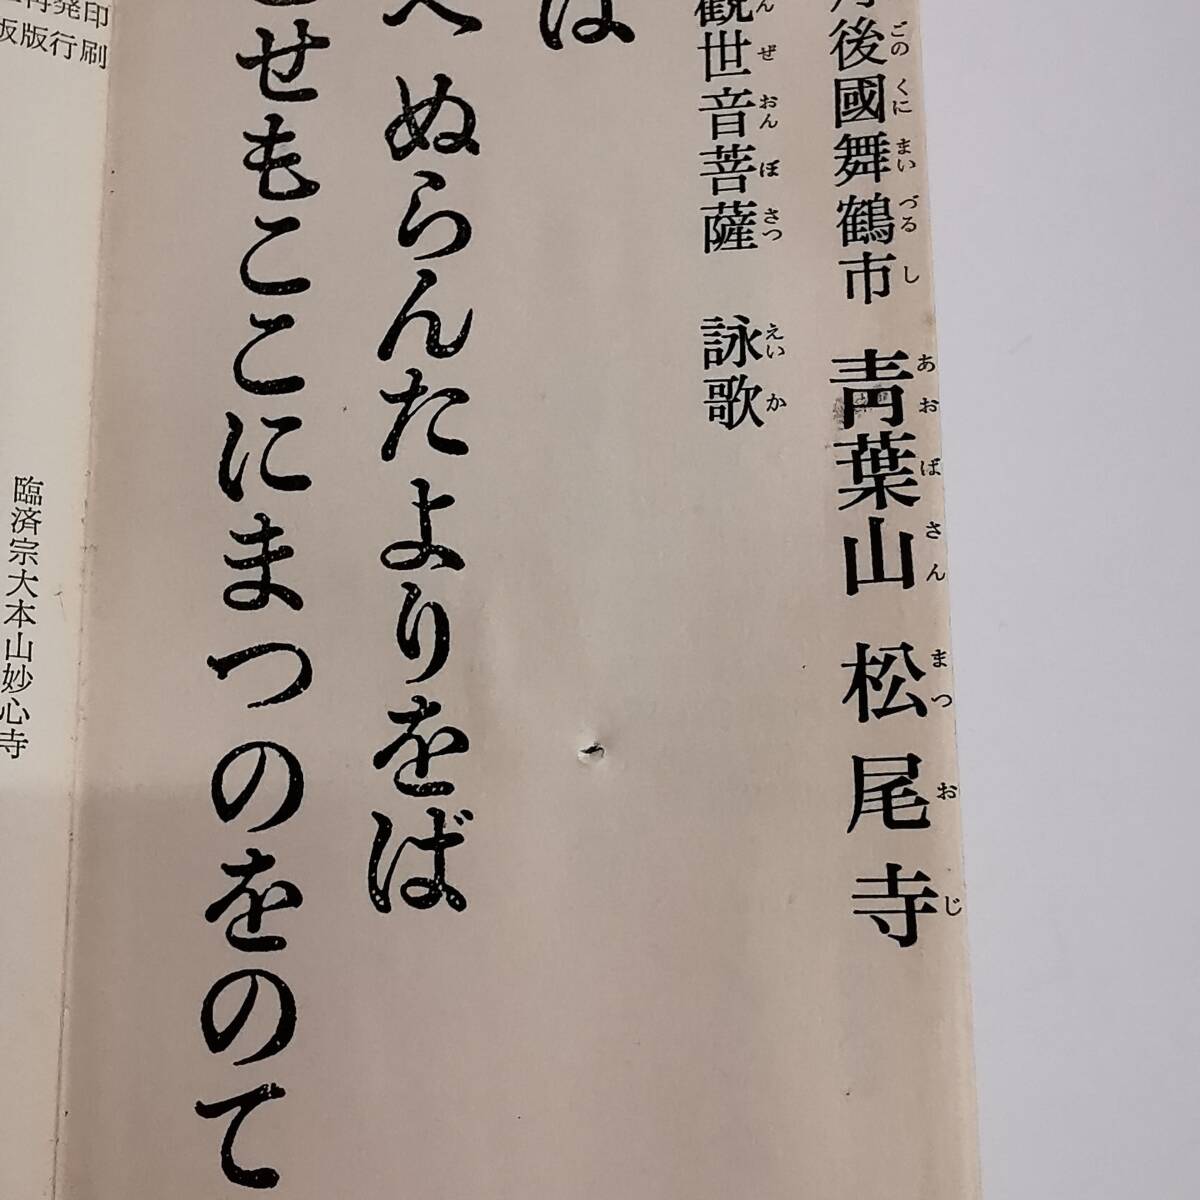 後國舞鶴市 靑葉山 松尾寺
ごのくにまいづるし あおばさん まつおじ
観世音菩薩 詠歌
んぜおんぼさつ えいか
は
へぬらんたよりをば
せもここにまつのをのて
再発印
版行刷
臨済宗大本山妙心寺